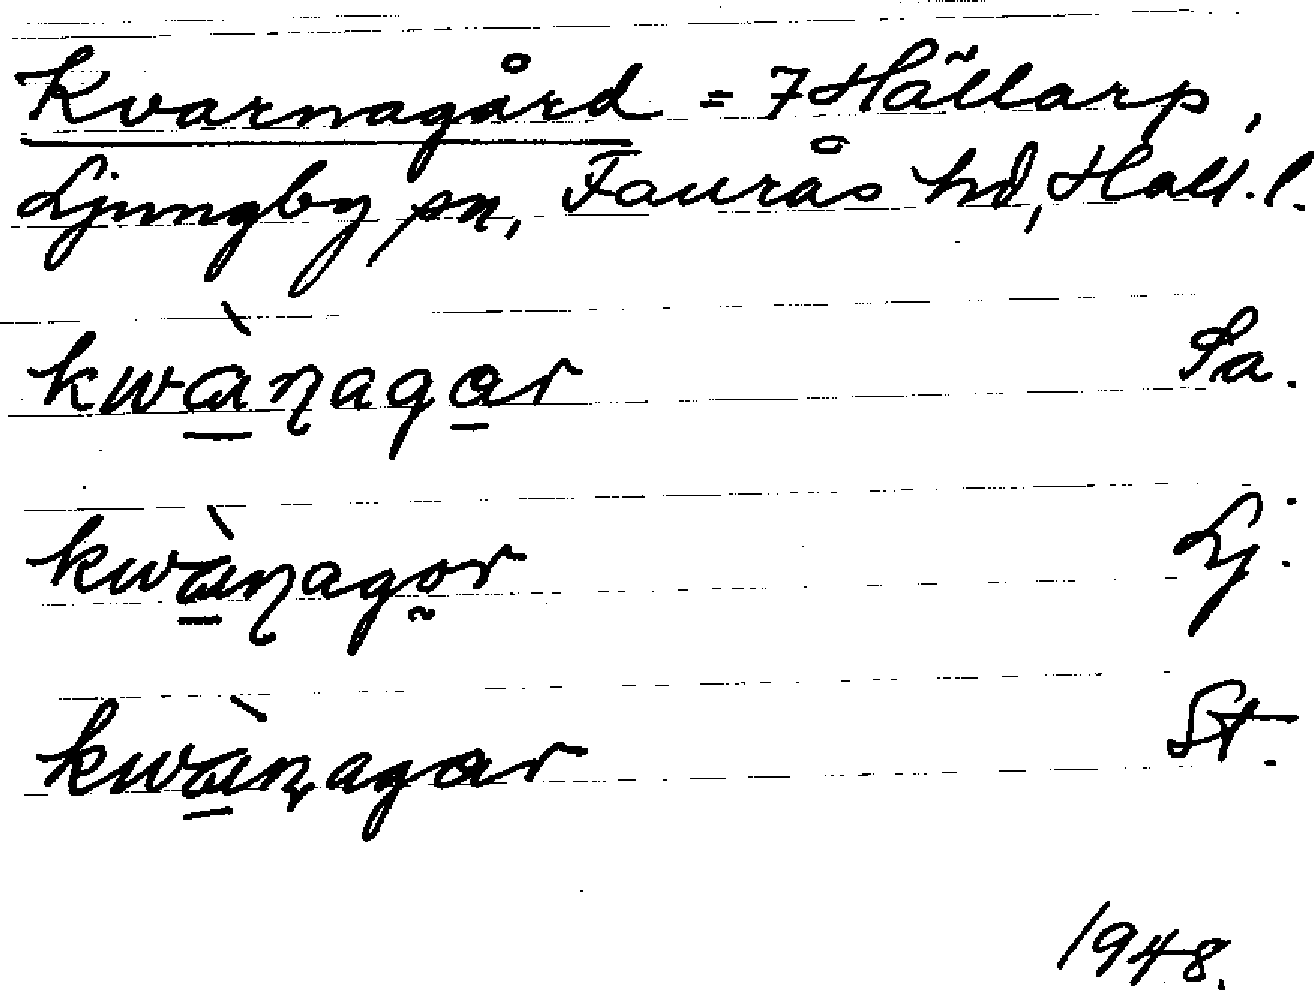 Kvarnagård = 7 Hällarp,
Ljungby sn, Faurås hd, Hall. l.
kwàɳagar Sa.
kwàɳagor Lj.
kwàɳagar St.
1948.